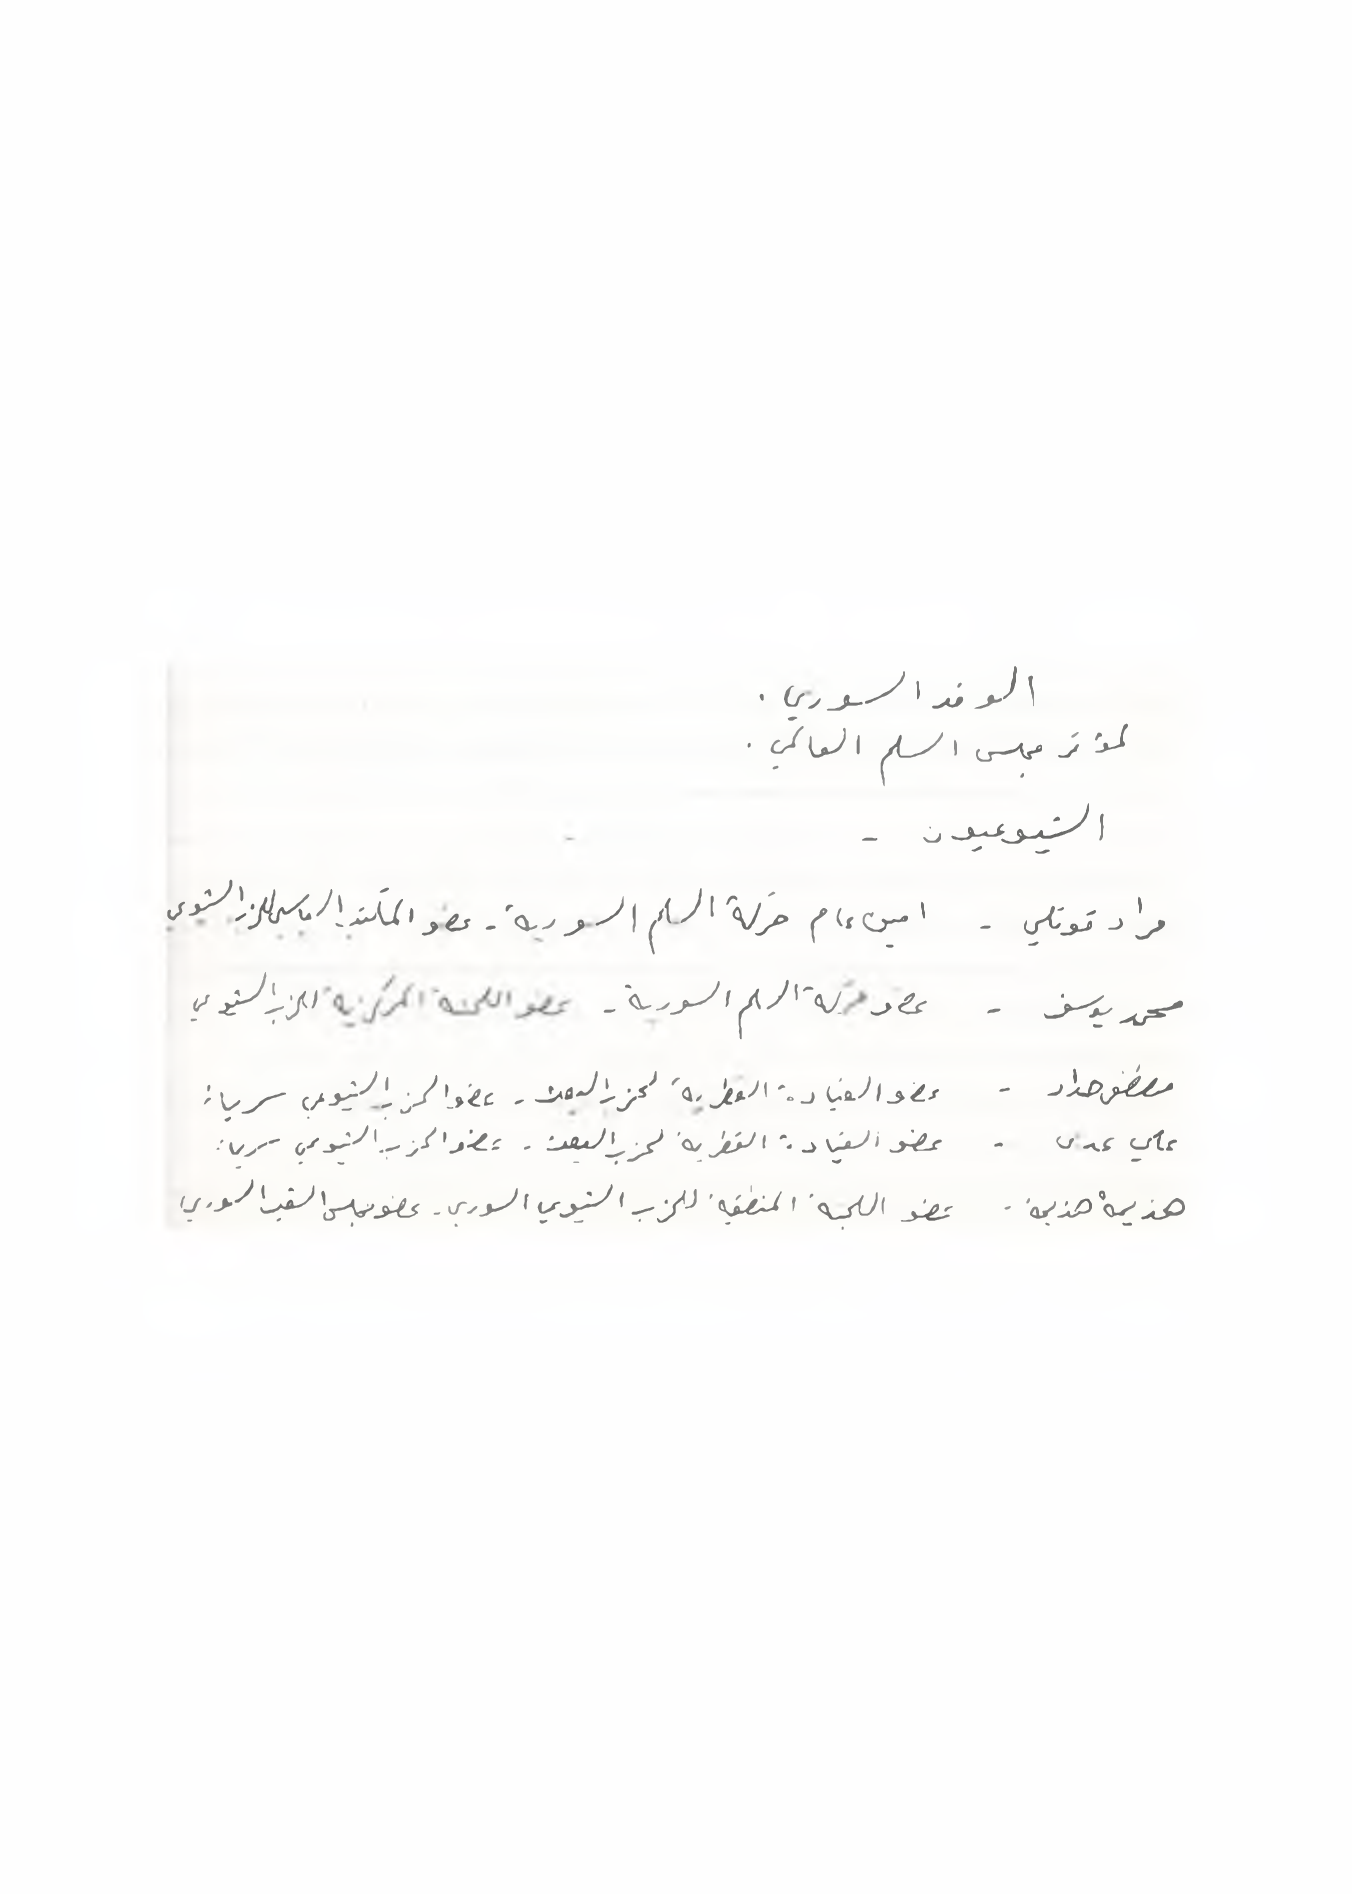 الوفد السوري .
لمؤتمر مجلس السلم العالمي .
الشيوعيون -
مراد قوتلي - امين عام حركة السلم السورية - عضو المكتب السياسي للحزب الشيوعي
محمد يوسف - عضو حركة السلم السورية - عضو اللجنة المركزية للحزب الشيوعي
حداد - عضو القيادة القطرية لحزب البعث - عضو الحزب الشيوعي سرياً
علي عدي - عضو القيادة القطرية لحزب البعث - عضو الحزب الشيوعي سرياً
هذيمة هذيمة - عضو اللجنة المنطقية للحزب الشيوعي السوري - عضو مجلس الشعب السوري